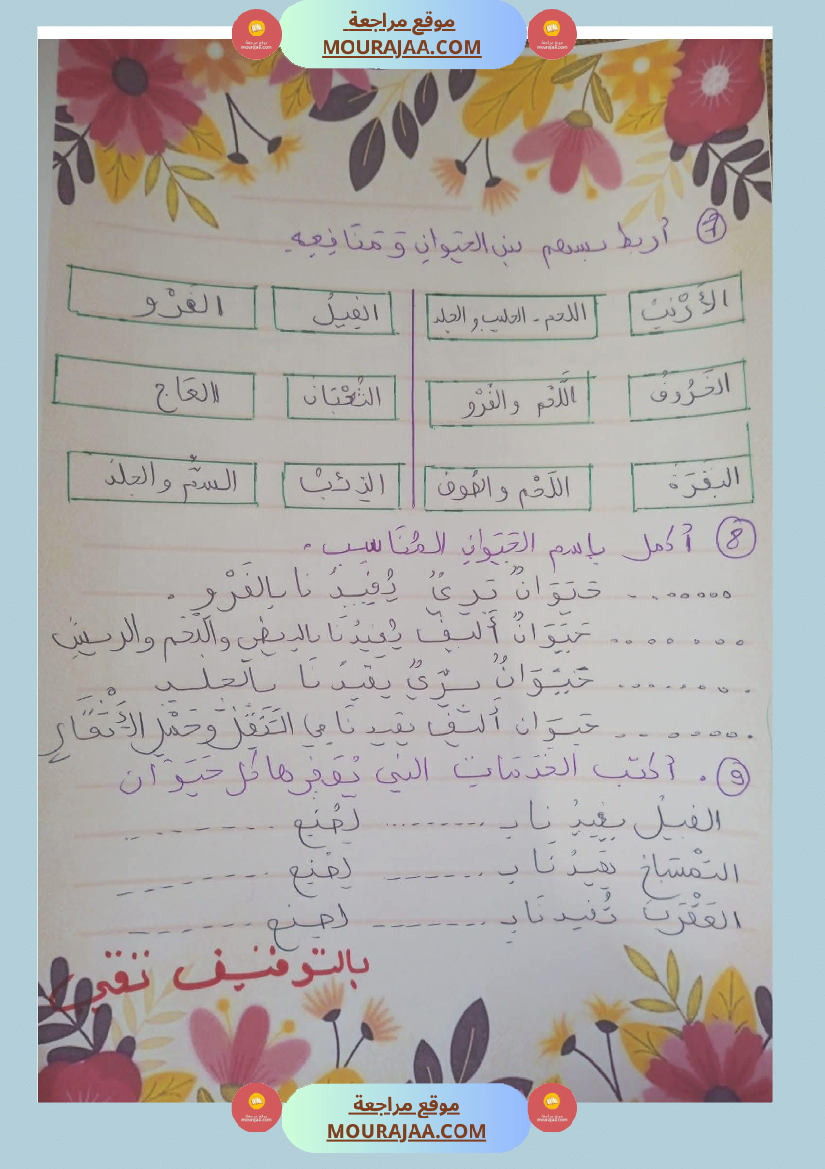 موقع مراجعة
MOURAJAA.COM
7 أربط بسهم بين الحيوان و منافعه
الأرْنَبُ اللحم - الحليب و الجلد الفِيلُ الفَرْو
الخَرُوفُ اللَّحْم و الفَرْو الثُّعْبَان العَاج
البَقَرَة اللَّحْم و الصُّوف الذِئْبُ السمّ و الجلد
8 أكمل بإسم الحَيَوَانِ المُنَاسِبِ .
........ حَيَوَانٌ بَرِيٌّ يُفِيدُنَا بِالفَرْوِ .
........ حَيَوَانٌ أَلِيفٌ يُفِيدُنَا بالبيض واللَّحْم والريش
........ حَيَوَانٌ بَرِّيٌّ يفيدُنَا بالجلد
........ حَيَوَان أَلِيف يفيدنَا في التَنَقُّلْ وحَمْلِ الأَثْقَالِ
9 . أكتب الخَدَمَاتِ التي يُوَفِرها كل حَيَوَان
الفيلُ يفيدُنَا بـ ........ لِصُنْعِ ........
التِمْسَاحُ يفيدُنَا بـ ........ لِصُنْعِ ........
العَقْرَبُ تُفيدنَا بـ ........ لصنع ........
بالتوفيق
موقع مراجعة
MOURAJAA.COM